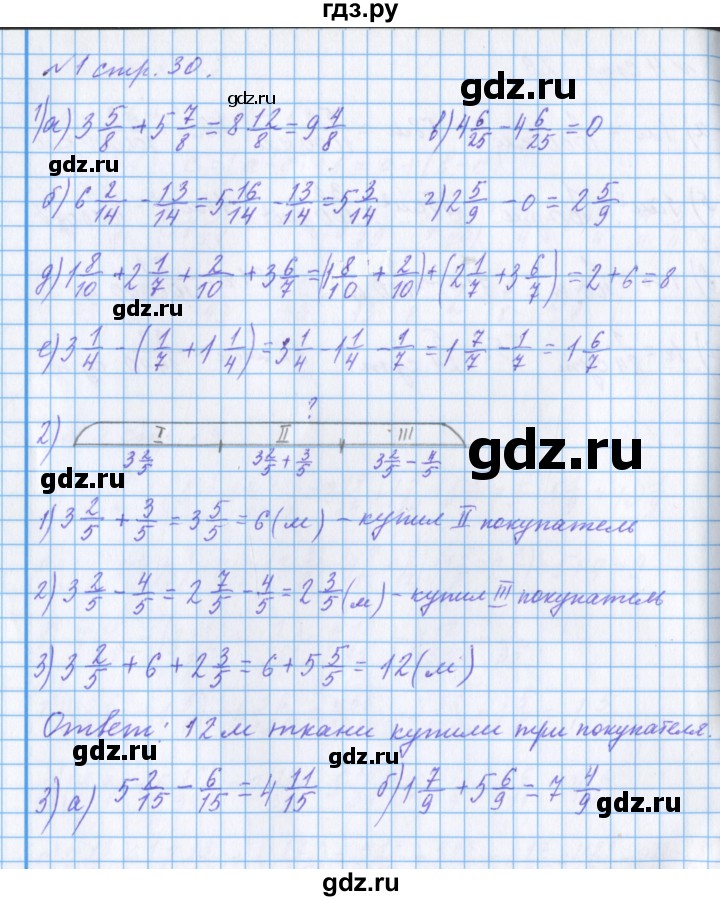 гдз.ру
№1 стр. 30.
gdz.ru
gdz.ru
1) а) 3 5/8 + 5 7/8 = 8 12/8 = 9 4/8 в) 4 6/25 - 4 6/25 = 0
gdz.ru gdz.ru
б) 6 2/14 - 13/14 = 5 16/14 - 13/14 = 5 3/14 г) 2 5/9 - 0 = 2 5/9
д) 1 8/10 + 2 1/7 + 2/10 + 3 6/7 = (1 8/10 + 2/10) + (2 1/7 + 3 6/7) = 2 + 6 = 8
gdz.ru
е) 3 1/4 - (1/7 + 1 1/4) = 3 1/4 - 1 1/4 - 1/7 = 1 7/7 - 1/7 = 1 6/7
?
2) I II III
3 2/5 3 2/5 + 3/5 3 2/5 - 4/5
gdz.ru gdz.ru
1) 3 2/5 + 3/5 = 3 5/5 = 6 (м) - купил II покупатель
2) 3 2/5 - 4/5 = 2 7/5 - 4/5 = 2 3/5 (м) - купил III покупатель
3) 3 2/5 + 6 + 2 3/5 = 6 + 5 5/5 = 12 (м)
Ответ: 12 м ткани купили три покупателя.
gdz.ru gdz.ru
3) а) 5 2/15 - 6/15 = 4 11/15 б) 1 7/9 + 5 6/9 = 7 4/9
gdz.ru
gdz.ru
gdz.ru